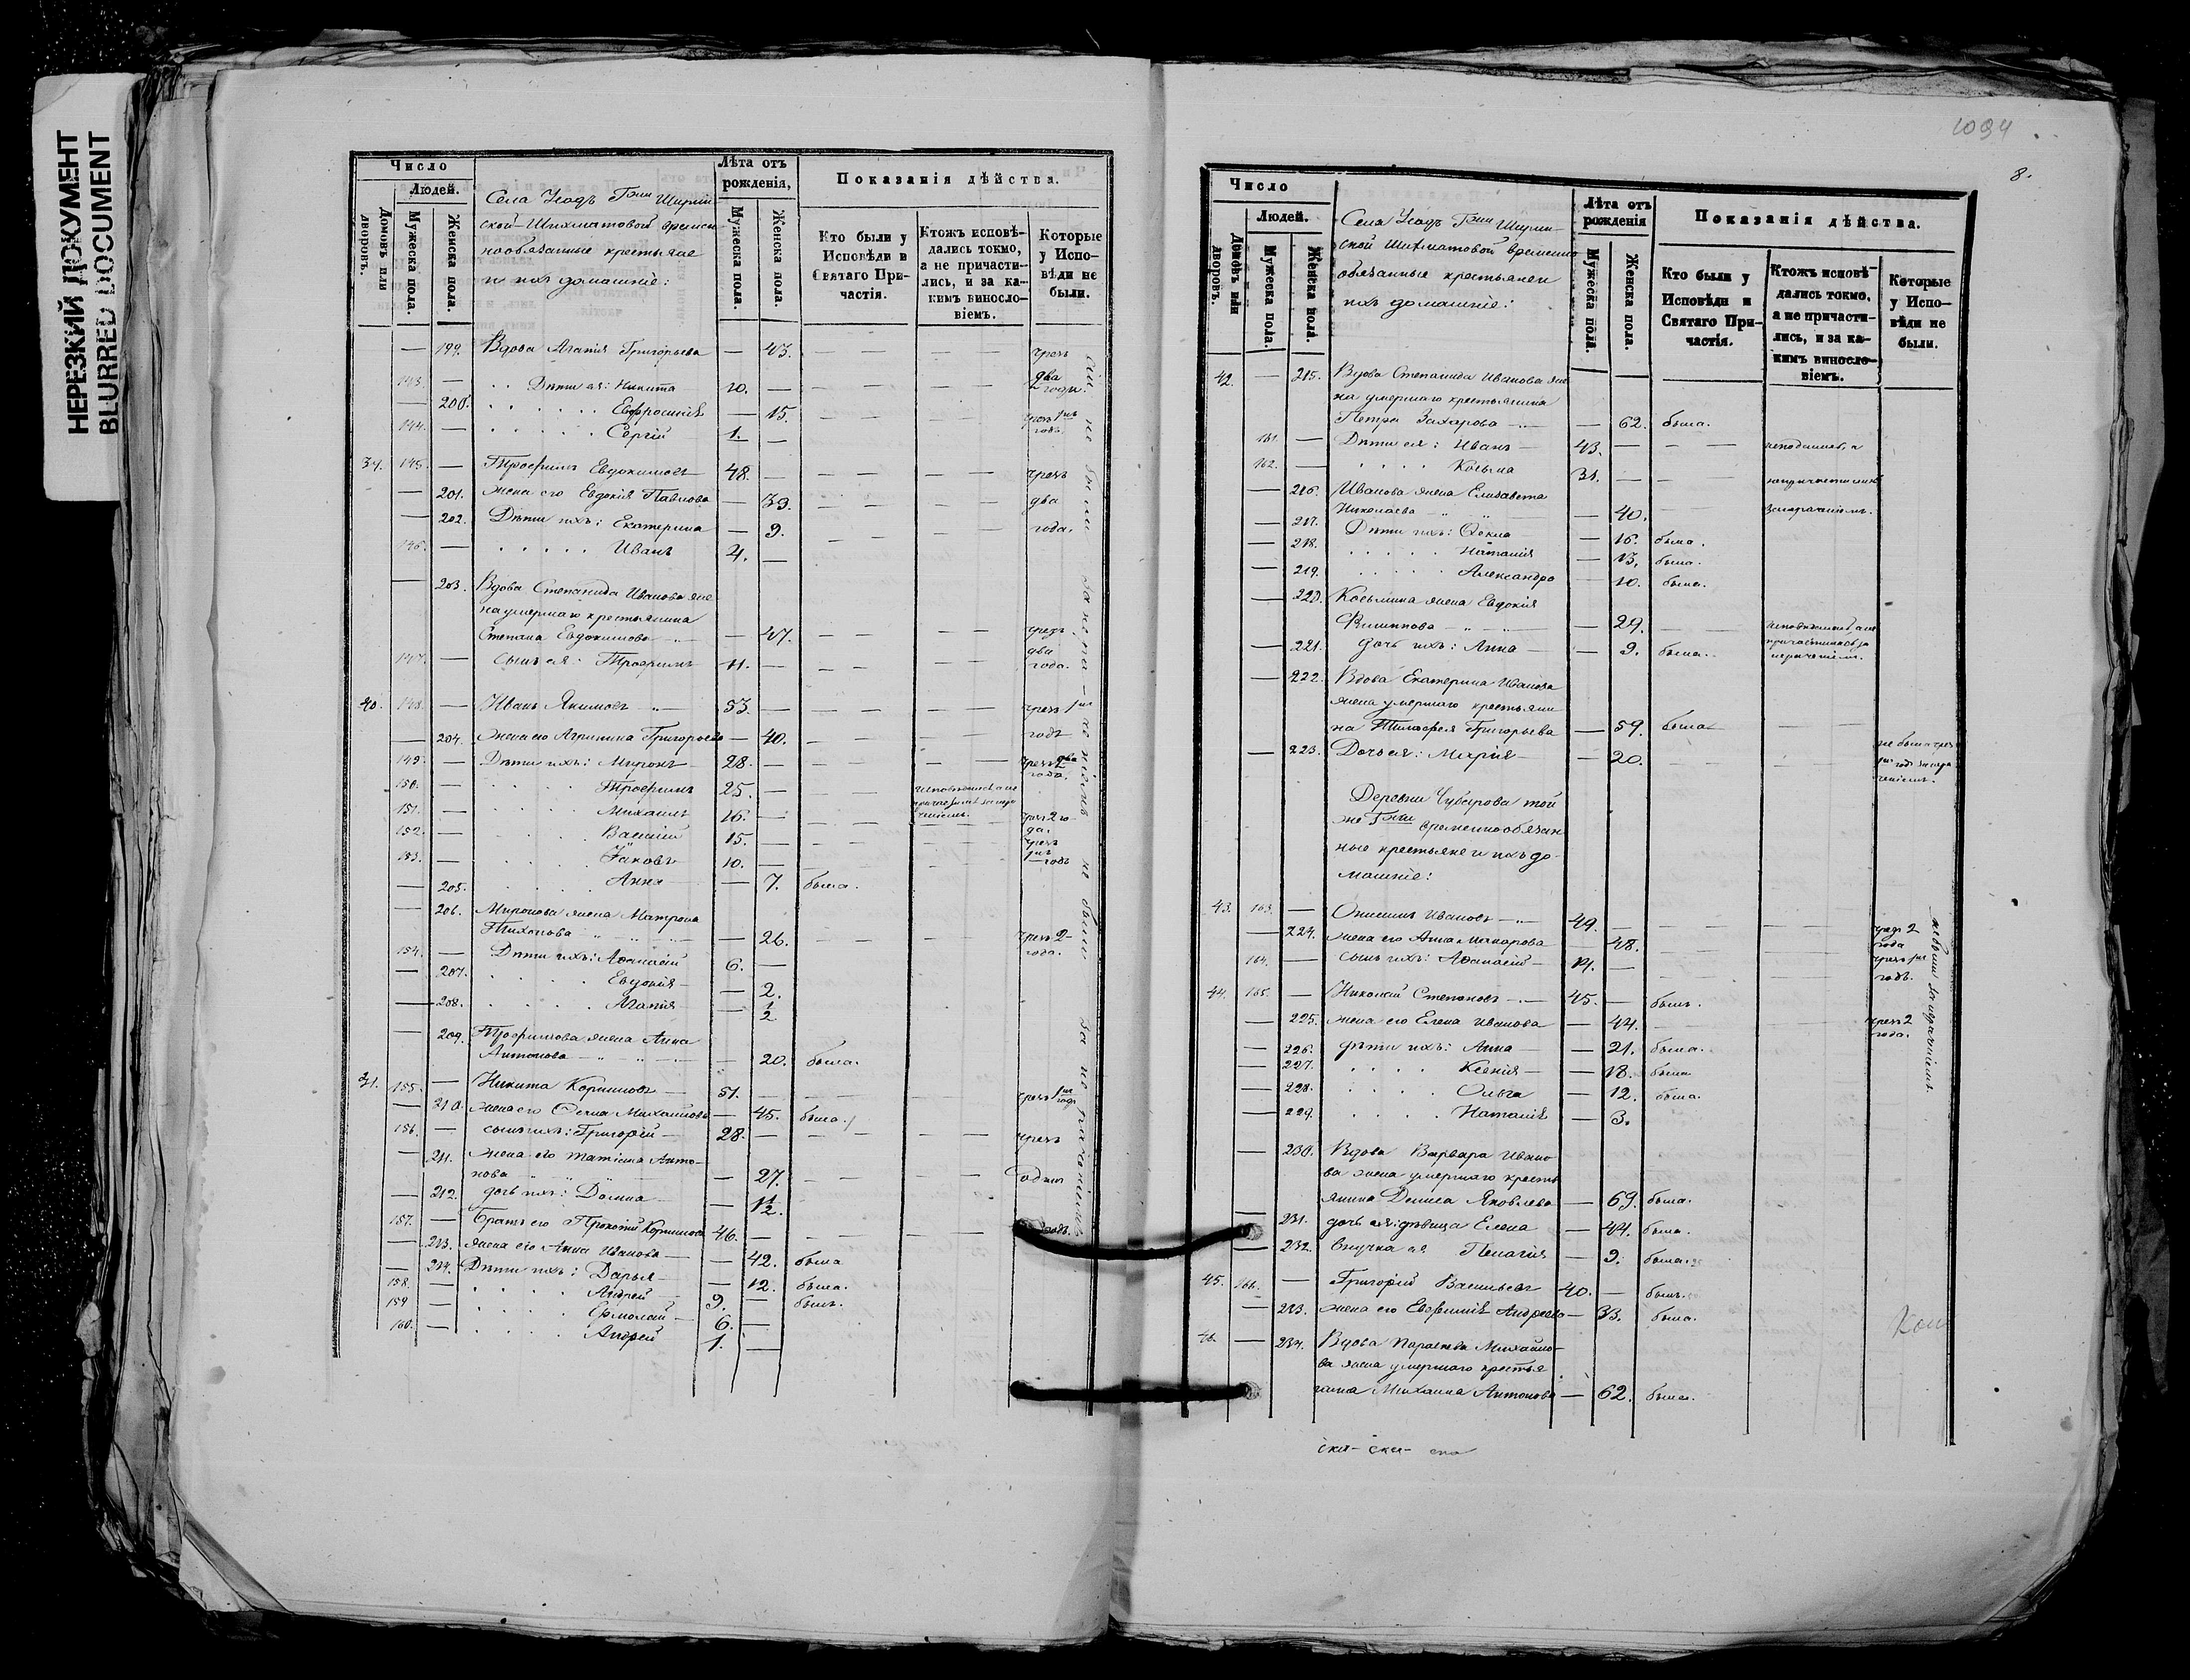 НЕРЕЗКИЙ ДОКУМЕНТ
BLURRED DOCUMENT
Число
Людей.
Домовъ или дворовъ.
Мужеска пола.
Женска пола.
Села
ской-Шихматовой времен
нообязанные крестьяне
и ихъ домашніе:
Лѣта отъ рожденія,
Мужеска пола.
Женска пола.
Показанія дѣйства.
Кто были у Исповѣди и Святаго Причастія.
Ктожъ исповѣдались токмо, а не причастились, и за какимъ винословіемъ.
Которые у Исповѣди не были.
— 199. Вдова Агапія Григорьева — 43. — — — — чрезъ
143. — Дѣти ея: Никита 10. — два года.
— 200. Ефросинія — 15. — — — —
144. — Сергій 1. —
39. 145. — Трофимъ Евдокимовъ 48. — — — — — чрезъ
— 201. жена его Евдокія Павлова — 39. — — — — два
— 202. Дѣти ихъ: Екатерина — 9. — — — года.
146. — Иванъ 4. —
— 203. Вдова Степанида Иванова же
на умершаго крестьянина
Степана Евдокимова — 47. — — — — чрезъ
147. — сынъ ея: Трофимъ 11. — — — — — два года.
40. 148. — Иванъ Якимовъ 53. — — — — — чрезъ 1нъ
— 204. жена его Агрипина Григорьева — 40. — — — — годъ
149. — Дѣти ихъ: Миронъ 28. — — — — — чрезъ два года.
150. — Трофимъ 25. — — —
151. — Михаилъ 16. — — — — — чрезъ 2 го-
да.
152. — Василій 15. — — — — — чрезъ
153. — Іаковъ 10. — 1нъ годъ
— 205. Анна — 7. была.
— 206. Миронова жена Матрона
Тихонова — 26. — — — чрезъ 2-
года.
154. — Дѣти ихъ: Аѳанасій 6. —
— 207. Евдокія — 2.
— 208. Агапія — 1/2
— 209. Трофимова жена Анна
Антонова — 20. была.
41. 155. — Никита Корниловъ 51. — — — — — чрезъ 1нъ годъ
— 210. жена его Ѳекла Михайлова — 45. была.
156. — сынъ ихъ: Григорій 28. — — — — — чрезъ
— 211. жена его Татіана Анто-
нова — 27. — — — одинъ
— 212. дочь ихъ: Домна — 1/2.
157. — Братъ его Прокопій Корниловъ 46. — — — — — годъ.
— 213. жена его Анна Иванова — 42. была
— 214. Дѣти ихъ: Дарья — 12. была.
158. — Андрей 9. — былъ.
159 — Ермолай 6. —
160. — Андрей 1. —
1094
8.
Число
Людей.
Домовъ или дворовъ.
Мужеска пола.
Женска пола.
Села
ской Шихматовой временно
обязанные крестьяне и
ихъ домашніе:
Лѣта отъ рожденія
Мужеска пола.
Женска пола.
Показанія дѣйства.
Кто были у Исповѣди и Святаго Причастія.
Ктожъ исповѣдались токмо, а не причастились, и за какимъ винословіемъ.
Которые у Исповѣди не были.
42. — 215. Вдова Степанида Иванова же
на умершаго крестьянина
Петра Захарова — 62. была.
161. — Дѣти ея: Иванъ 43. — — —
162. — Косьма 31. — —
— 216. Иванова жена Елисавета
Николаева — 40.
— 217. Дѣти ихъ: Ѳекла — 16. была.
— 218. Наталія — 13. была.
— 219. Александра — 10. была.
— 220. Косьмина жена Евдокія
Филиппова — 29. — —
— 221. дочь ихъ: Анна — 9. была.
— 222. Вдова Екатерина Иванова
жена умершаго крестьяни
на Тимофея Григорьева — 59. была — —
— 223. Дочь ея: Марія — 20. — — — — не была чрезъ
1нъ годъ за нера
Деревни Чубарова той
же временнообязан
ные крестьяне и ихъ до-
машніе:
43. 163. — Онисимъ Ивановъ 49. — — — — — чрезъ 2
— 224. жена его Анна Макарова — 48. — — — — года
164. — сынъ ихъ: Аѳанасій 14. — — — — — чрезъ 1нъ
годъ.
44. 165. — Николай Степановъ 45. — былъ.
— 225. жена его Елена Иванова — 44. — — — — чрезъ 2
года.
— 226. дѣти ихъ: Анна — 21. была.
— 227. Ксенія — 18. была
— 228. Ольга — 12. была.
— 229. Наталія — 3.
— 230. Вдова Варвара Ивано-
ва жена умершаго кресть
янина Дениса Яковлева — 69. была.
— 231. дочь ея: дѣвица Елена — 44. была.
— 232. внучка ея Пелагія — 9. была.
45. 166. — Григорій Васильевъ 40. — былъ.
— 233. жена его Евфимія Андреева — 33. была.
46. — 234. Вдова Параскева Михайло-
ва жена умершаго крестья
нина Михаила Антонова — 62. была.
не были за нераченіемъ.